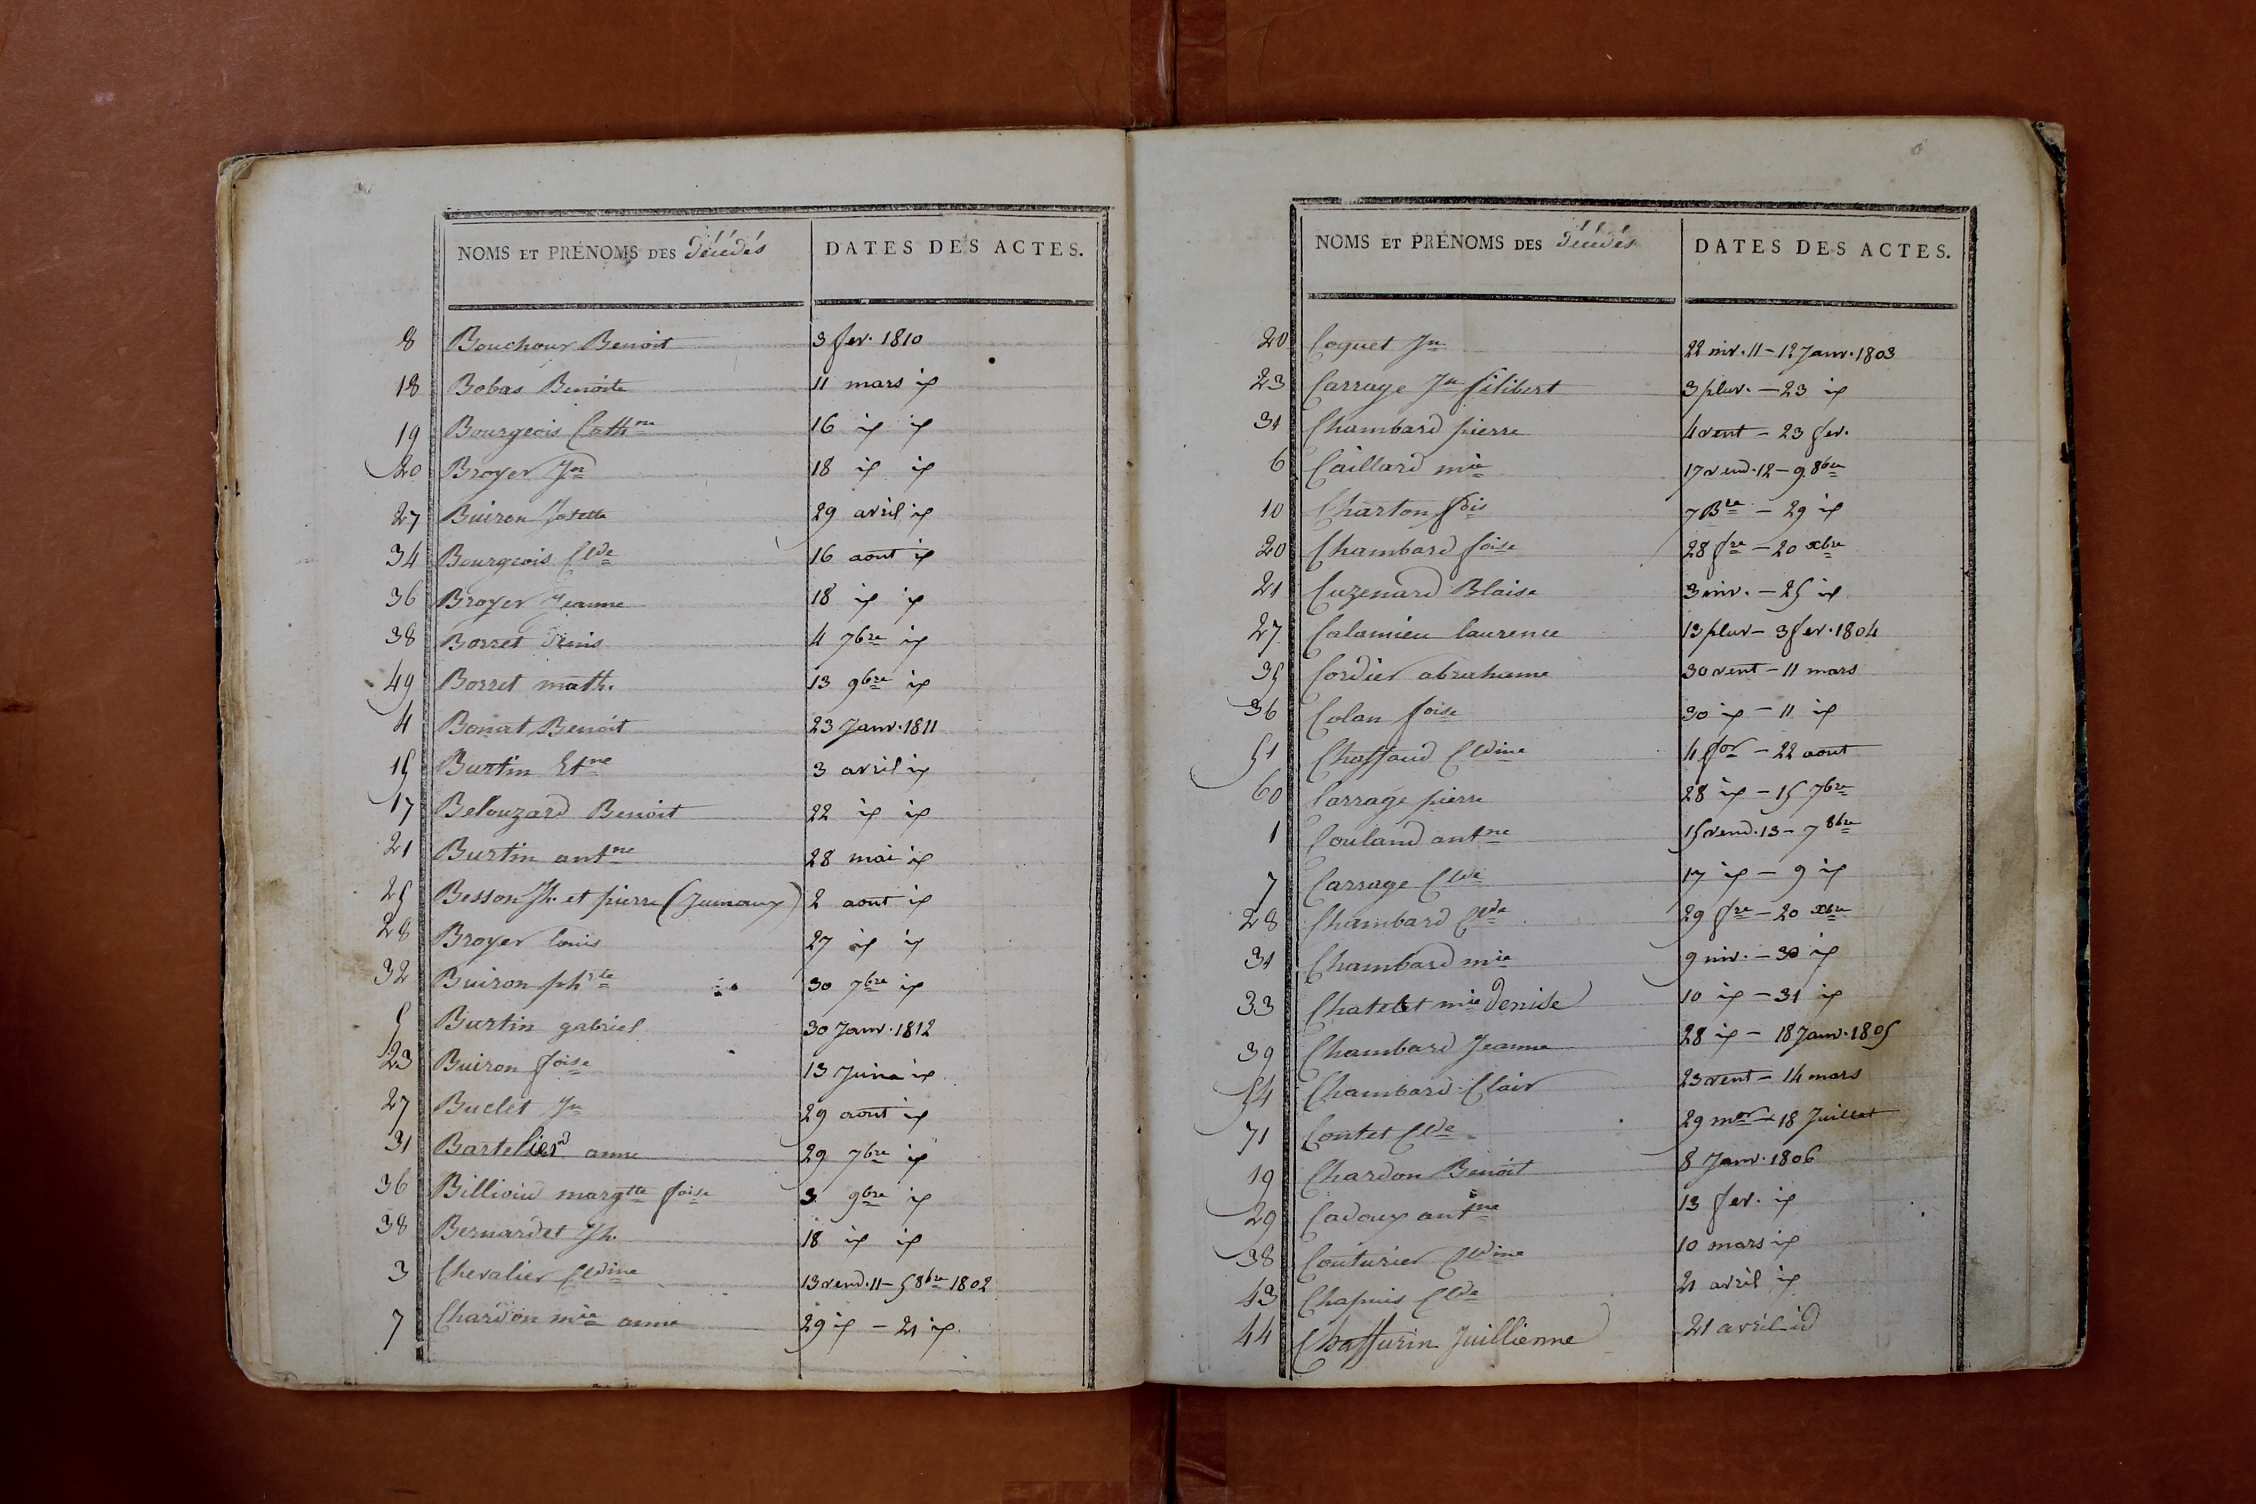 NOMS ET PRÉNOMS DES Décédés DATES DES ACTES.
8 Bouchoux Benoit 3 fev. 1810
18 Bobas Benoite 11 mars id
19 Bourgeois Cathne 16 id id
20 Broyer Jn 18 id id
27 Buiron Josette 29 avril id
34 Bourgeois Clde 16 aout id
36 Broyer Jeanne 18 id id
38 Borret Denis 4 7bre id
49 Borret math. 13 9bre id
4 Bonat Benoit 23 Janv. 1811
15 Burtin Etne 3 avril id
17 Belouzard Benoit 22 id id
21 Burtin antne 28 mai id
25 Besson Jh. et pierre (Jumeaux) 2 aout id
28 Broyer louis 27 id id
32 Buiron phte 30 7bre id
5 Burtin gabriel 30 Janv. 1812
23 Buiron foise 13 Juin id
27 Buclet Jn 29 aout id
31 Bartelier anne 29 7bre id
36 Billioud margtte foise 3 9bre id
38 Bernardet Jh. 18 id id
3 Chevalier Cldine 13 vend. 11 - 5 8bre 1802
7 Chardon mie anne 29 id - 21 id
NOMS ET PRÉNOMS DES Décédés DATES DES ACTES.
20 Coquet Jn 22 niv. 11 - 12 Janv. 1803
23 Carrage Jn filibert 3 pluv. - 23 id
31 Chambard pierre 4 vent - 23 fev.
6 Caillard mie 17 vend. 12 - 9 8bre
10 Charton fois 7 Bre - 29 id
20 Chambard foise 28 fre - 20 xbre
21 Cuzenard Blaise 3 niv. - 25 id
27 Calamieu laurence 13 pluv - 3 fev. 1804
35 Cordier abrahame 30 vent - 11 mars
36 Colan foise 30 id - 11 id
51 Chaffaud Cldine 4 for - 22 aout
60 Carrage pierre 28 id - 15 7bre
1 Couland antne 15 vend. 13 - 7 8bre
7 Carrage Clde 17 id - 9 id
28 Chambard Clde 29 fre - 20 xbre
31 Chambard mie 9 niv. - 30 id
33 Chatelet mie Denise 10 id - 31 id
39 Chambard Jeanne 28 id - 18 Janv. 1805
54 Chambard Clair 23 vent - 14 mars
71 Contet Clde 29 mor - 18 Juillet
19 Chardon Benoit 8 Janv. 1806
29 Cadoux antne 13 fev. id
38 Couturier Cldine 10 mars id
43 Chapuis Clde 21 avril id
44 Chaffurin Juillienne 21 avril id